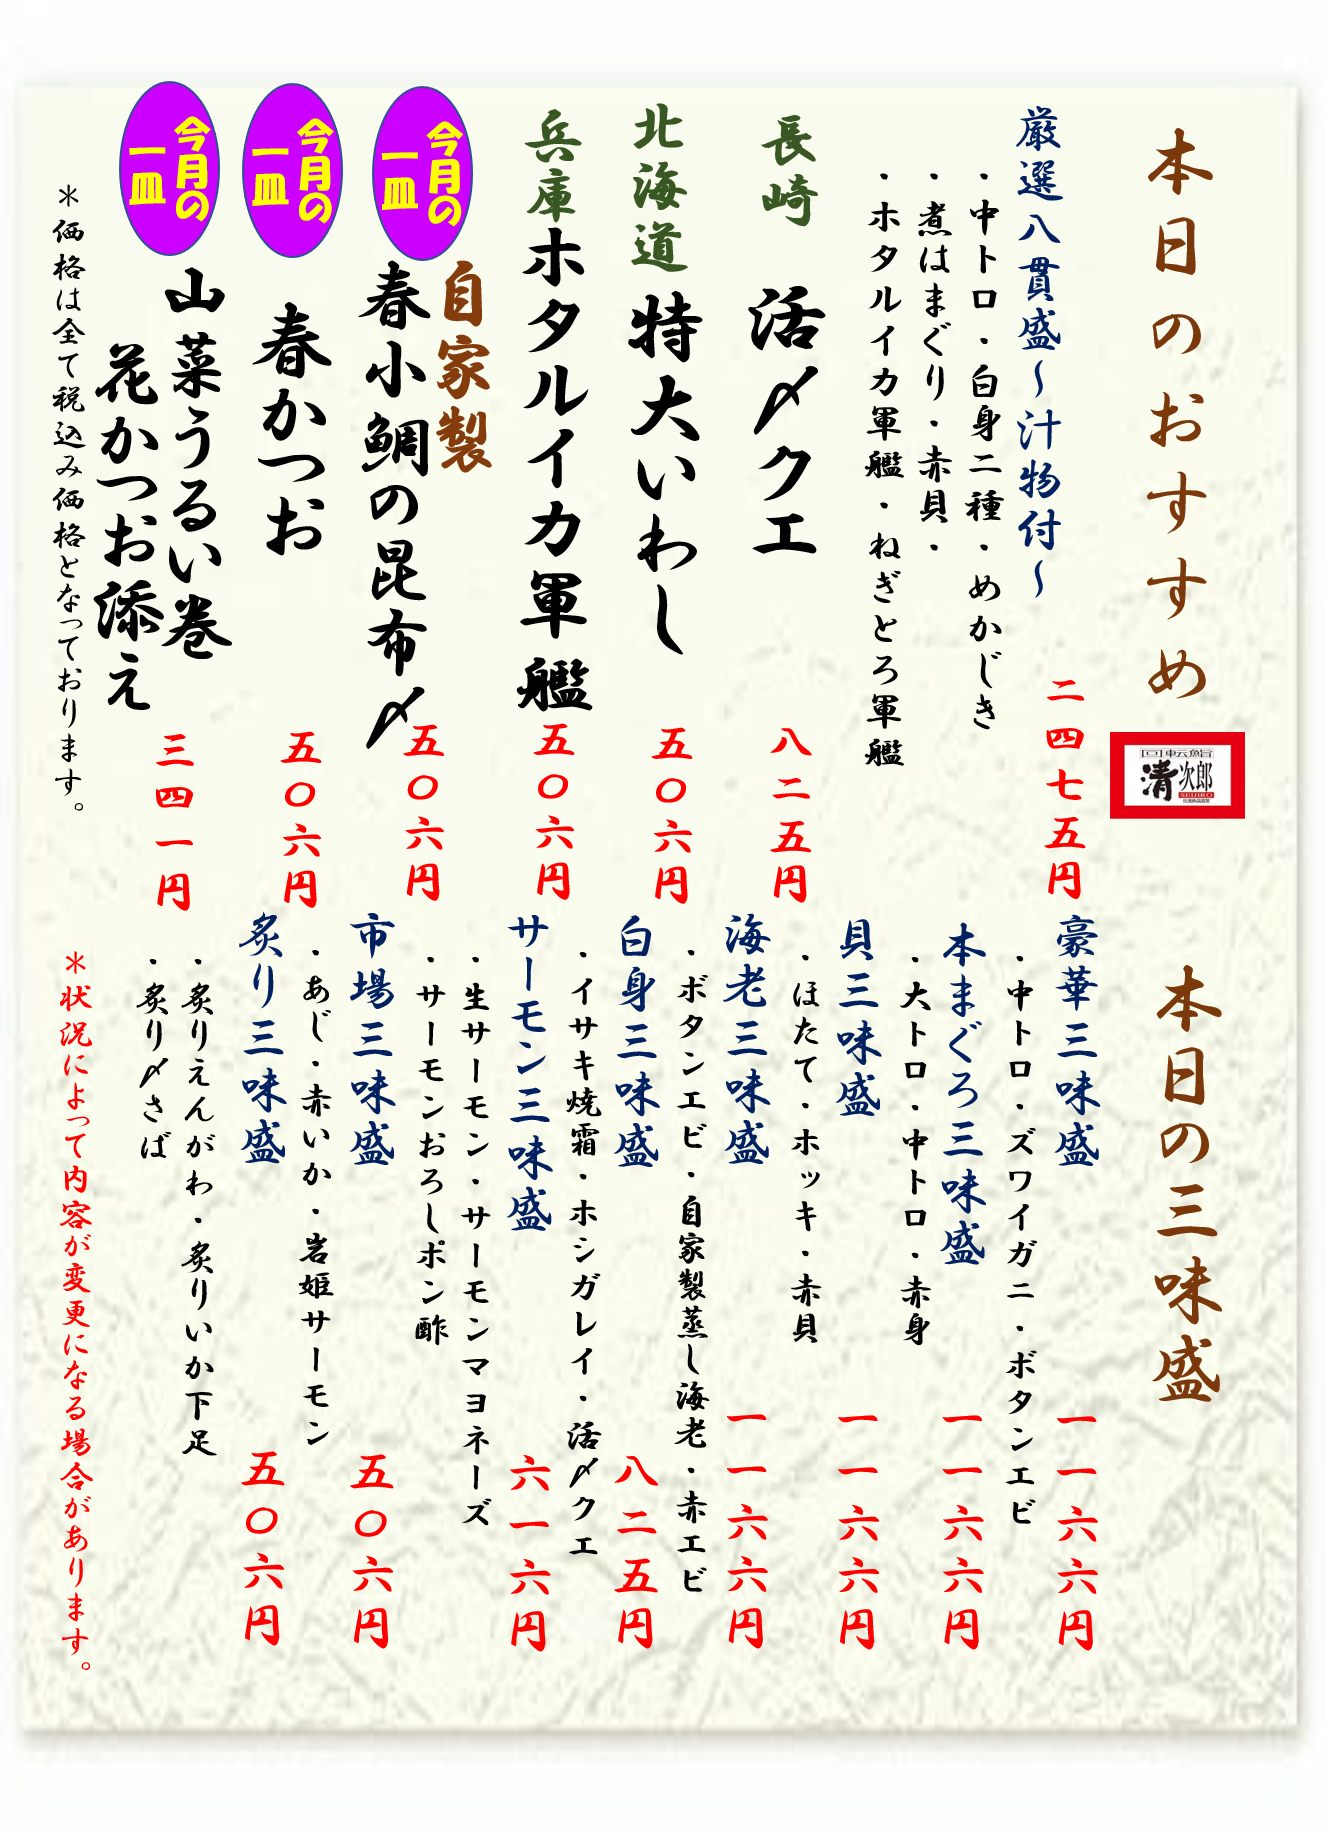 本日のおすすめ
回転鮨
清次郎
SEIJIRO
厳選八貫盛～汁物付～
二四七五円
・中トロ・白身二種・めかじき
・煮はまぐり・赤貝・
・ホタルイカ軍艦・ねぎとろ軍艦
長崎
活〆クエ
八二五円
北海道
特大いわし
五〇六円
兵庫
ホタルイカ軍艦
五〇六円
今月の
一皿
自家製
春小鯛の昆布〆
五〇六円
今月の
一皿
春かつお
五〇六円
今月の
一皿
山菜うるい巻
花かつお添え
三四一円
＊価格は全て税込み価格となっております。
本日の三味盛
豪華三味盛
一一六六円
・中トロ・ズワイガニ・ボタンエビ
本まぐろ三味盛
一一六六円
・大トロ・中トロ・赤身
貝三味盛
一一六六円
・ほたて・ホッキ・赤貝
海老三味盛
一一六六円
・ボタンエビ・自家製蒸し海老・赤エビ
白身三味盛
八二五円
・イサキ焼霜・ホシガレイ・活〆クエ
サーモン三味盛
六一六円
・生サーモン・サーモンマヨネーズ
・サーモンおろしポン酢
市場三味盛
五〇六円
・あじ・赤いか・岩姫サーモン
炙り三味盛
五〇六円
・炙りえんがわ・炙りいか下足
・炙り〆さば
＊状況によって内容が変更になる場合があります。